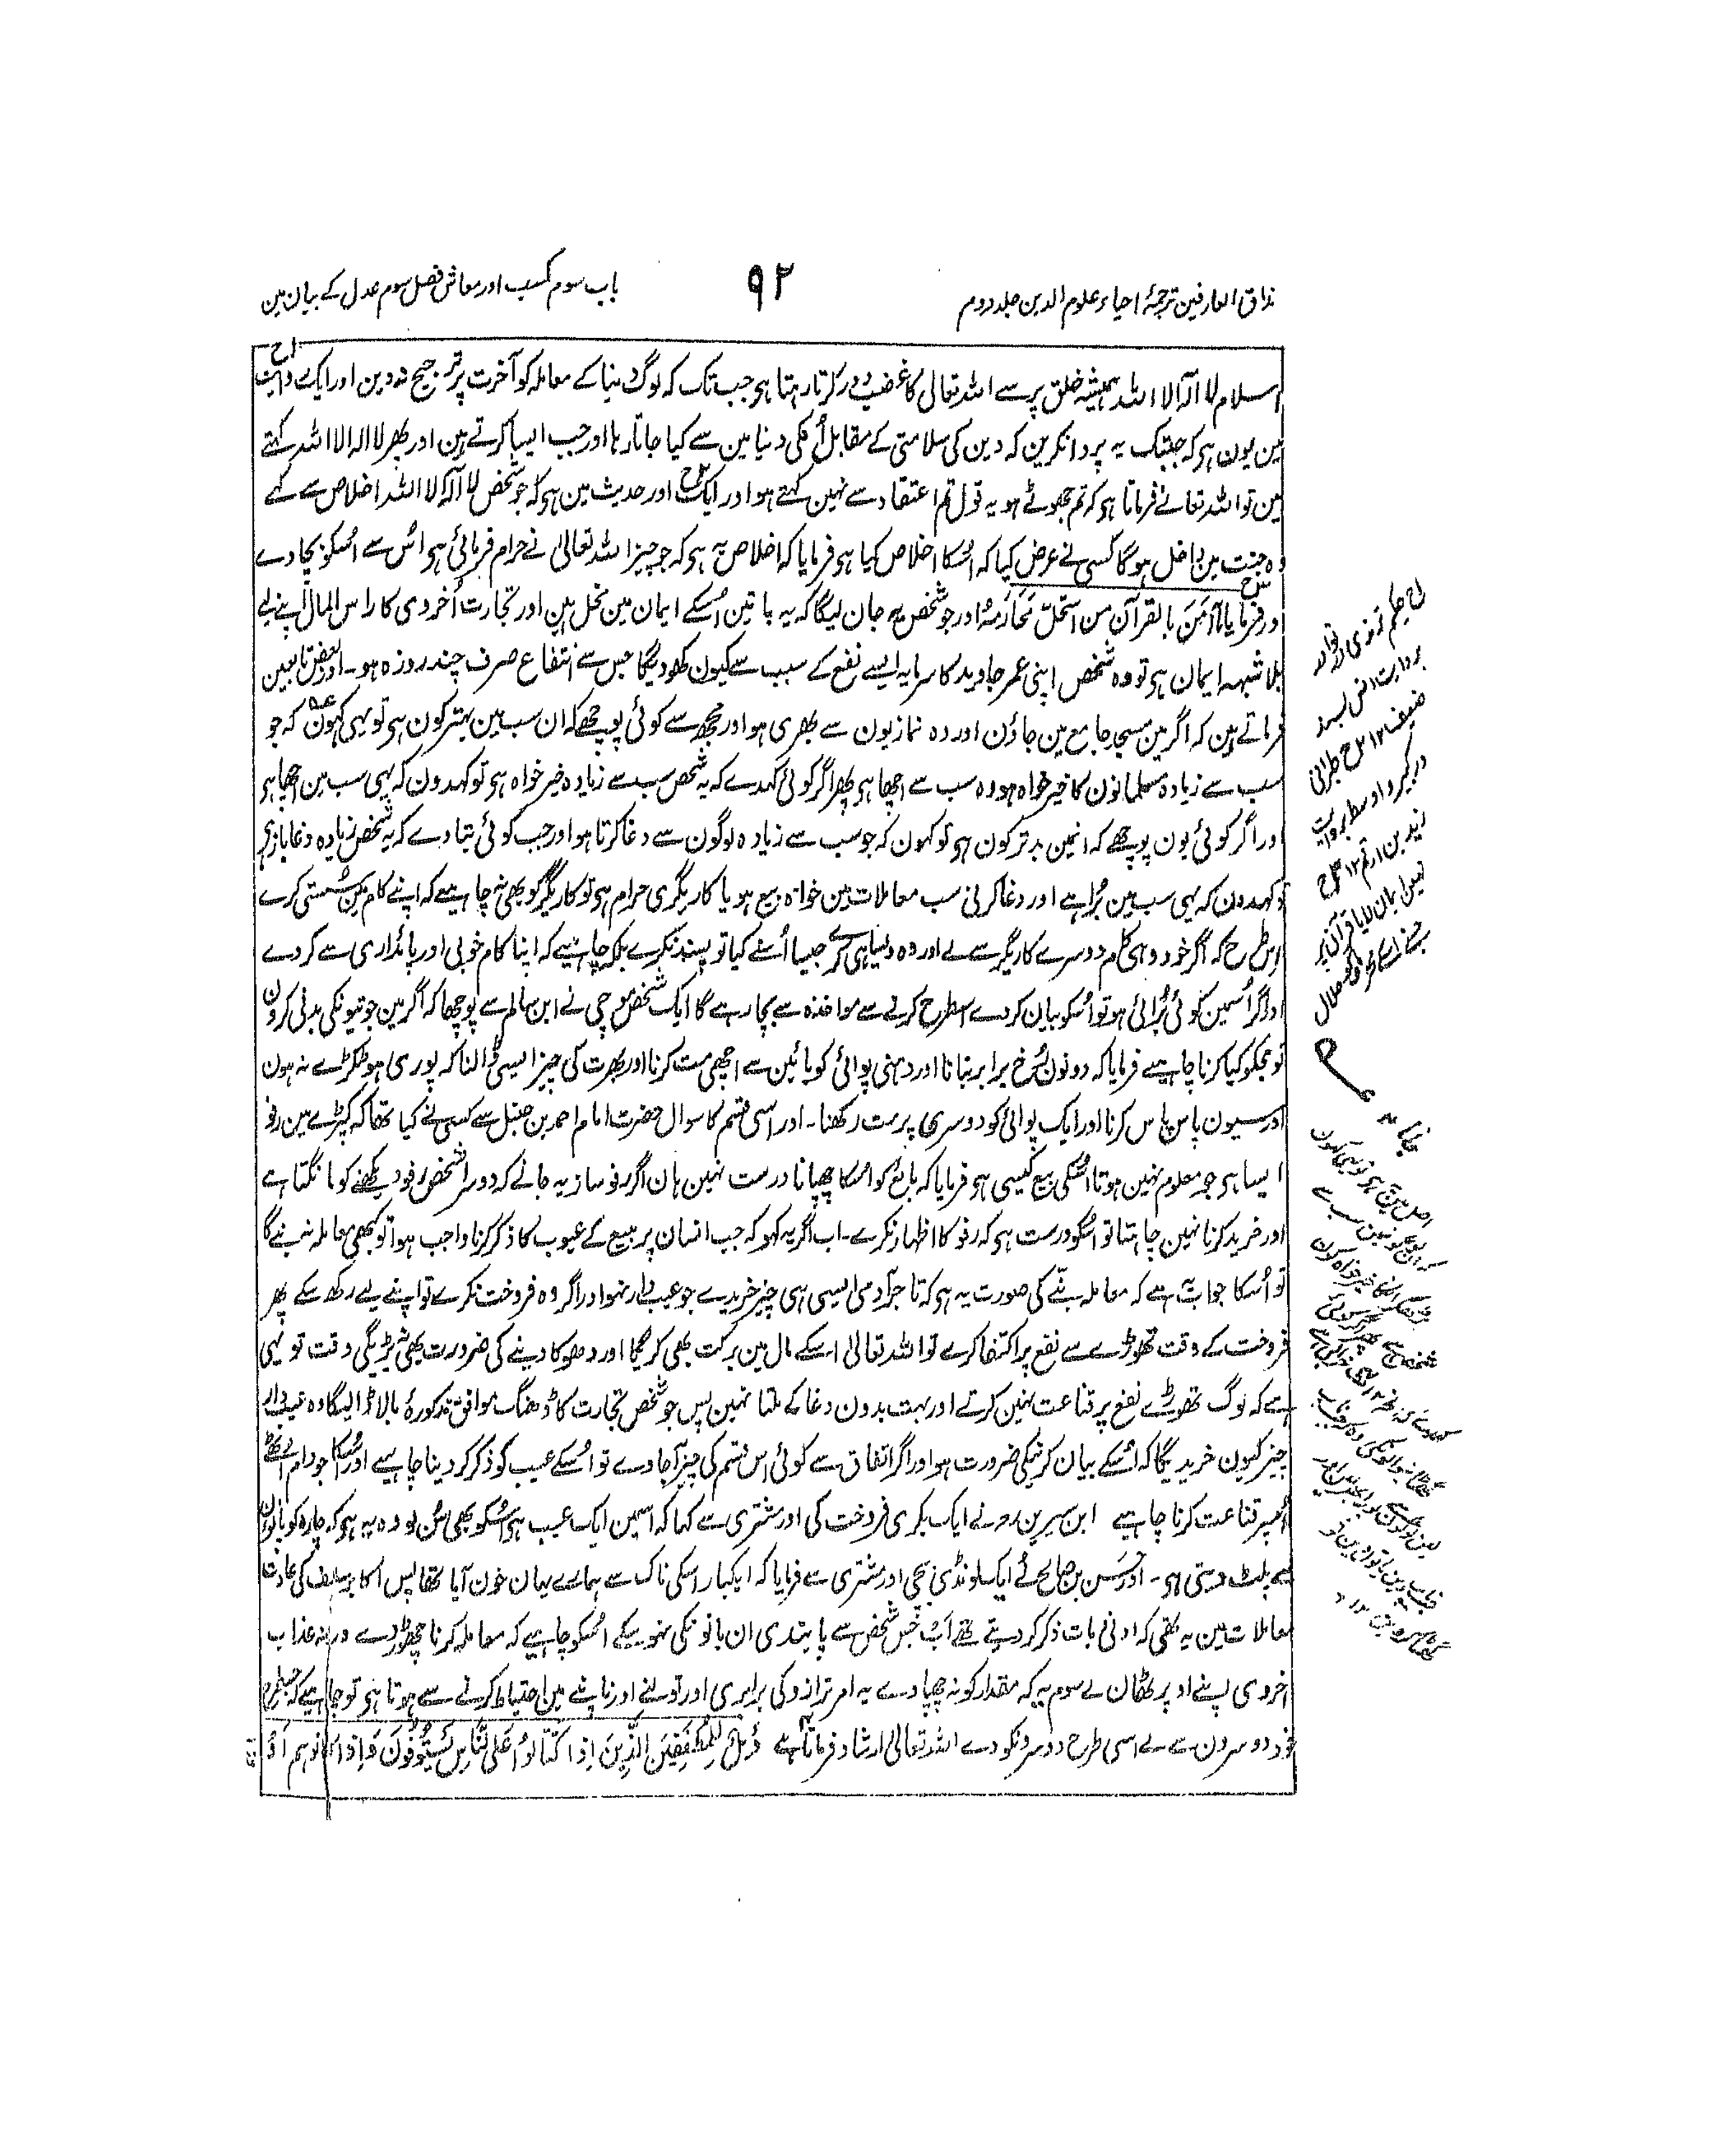 مذاق العارفین ترجمۂ احیاء علوم الدین جلد دوم
۹۲
باب سوم کسب اور معاش فصل سوم عدل کے بیان مین
اسلام لا الہ الا اللہ ہمیشہ خلق پر سے اللہ تعالیٰ کا غضب دور کرتا رہتا ہو جب تک کہ لوگ دنیا کے معاملہ کو آخرت پر ترجیح نہ دین اور ایک روایت
مین یون ہو کہ جبتک یہ پروا نکرین کہ دین کی سلامتی کے مقابل اُنکی دنیا مین سے کیا جاتا رہا اور جب ایسا کرتے ہین اور پھر لا الہ الا اللہ کہتے
ہین تو اللہ تعالے فرماتا ہو کہ تم جھوٹے ہو یہ قول تم اعتقاد سے نہین کہتے ہو اور ایک اور حدیث مین ہو کہ جو شخص لا الہ الا اللہ اخلاص سے کہے
وہ جنت مین داخل ہو گا کسی نے عرض کیا کہ اُسکا اخلاص کیا ہو فرمایا کہ اخلاص یہ ہو کہ جو چیز اللہ تعالیٰ نے حرام فرمائی ہو اُس سے اُسکو بچا دے
اور فرمایا مَا آمَنَ بالقرآن من استحلّ مَحَارِمَہُ اور جو شخص یہ جان لیگا کہ یہ باتین اُسکے ایمان مین مخل ہین اور تجارت اُخروی کا راس المال اپنے لیے
بلا شبہہ ایمان ہو تو وہ شخص اپنی عمر جاوید کا سرمایہ ایسے نفع کے سبب سے کیون کھو دیگا جس سے انتفاع صرف چند روزہ ہو۔ اور بعض تابعین
فرماتے ہین کہ اگر مین مسجد جامع مین جاؤن اور وہ نمازیون سے بھری ہو اور مجھ سے کوئی پوچھے کہ ان سب مین بہتر کون ہو تو یہی کہون کہ جو
سب سے زیادہ مسلمانون کا خیر خواہ ہو وہ سب سے اچھا ہو پھر اگر کوئی کہدے کہ یہ شخص سب سے زیادہ خیر خواہ ہو تو کہدون کہ یہی سب مین اچھا ہو
اور اگر کوئی یون پوچھے کہ انمین بدتر کون ہو تو کہون کہ جو سب سے زیادہ لوگون سے دغا کرتا ہو اور جب کوئی بتا دے کہ یہ شخص زیادہ دغا باز ہو
تو کہدون کہ یہی سب مین بُرا ہے اور دغا کرنی سب معاملات مین خواہ بیع ہو یا کاریگری حرام ہو تو کاریگر کو بھی نہ چاہیے کہ اپنے کام مین سُستی کرے
اس طرح کہ اگر خود وہی کام دوسرے کاریگر سے لے اور وہ ویسا ہی کرے جیسا اُسنے کیا تو پسند نکرے بلکہ چاہیے کہ اپنا کام خوبی اور پائداری سے کر دے
اور اگر اُسمین کوئی بُرائی ہو تو اُسکو بیان کر دے اسطرح کرنے سے مواخذہ سے بچا رہے گا ایک شخص موچی نے ابن سالم سے پوچھا کہ اگر مین جوتیونکی بدنی کرون
تو مجکو کیا کرنا چاہیے فرمایا کہ دونون رُخ برابر بنانا اور دہنی پوائی کو بائین سے اچھی مت کرنا اور بھرت کی چیز ایسی ڈالنا کہ پوری ہو ٹکڑے نہ ہون
اور سیون پاس پاس کرنا اور ایک پوائی کو دوسری پر مت رکھنا۔ اور اسی قسم کا سوال حضرت امام احمد بن حنبل سے کسی نے کیا تھا کہ کپڑے مین رفو
ایسا ہو جو معلوم نہین ہوتا اُسکی بیع کیسی ہو فرمایا کہ بائع کو اُسکا چھپانا درست نہین ہان اگر رفو ساز یہ جانے کہ دوسرا شخص رفو دیکھنے کو مانگتا ہے
اور خرید کرنا نہین چاہتا تو اُسکو درست ہو کہ رفو کا اظہار نکرے۔ اب اگر یہ کہو کہ جب انسان پر مبیع کے عیوب کا ذکر کرنا واجب ہوا تو کبھی معاملہ نہ بنے گا
تو اُسکا جواب یہ ہے کہ معاملہ بننے کی صورت یہ ہو کہ تاجر آدمی ایسی ہی چیز خریدے جو عیب دار نہو اور اگر وہ فروخت نکرے تو اپنے لیے رکھ سکے پھر
فروخت کے وقت تھوڑے سے نفع پر اکتفا کرے تو اللہ تعالیٰ اسکے مال مین برکت بھی کریگا اور دھوکا دینے کی ضرورت بھی نہ پڑیگی دقت تو یہی
ہے کہ لوگ تھوڑے نفع پر قناعت نہین کرتے اور بہت بدون دغا کے ملتا نہین پس جو شخص تجارت کا ڈھنگ موافق مذکورۂ بالا ڈالیگا وہ عیب دار
چیز کیون خریدیگا کہ اُسکے بیان کرنیکی ضرورت ہو اور اگر اتفاق سے کوئی اس قسم کی چیز آ جاوے تو اُسکے عیب کو ذکر کر دینا چاہیے اور اُسکا جو دام اٹھے
اُسپر قناعت کرنا چاہیے ابن سیرین رحہ نے ایک بکری فروخت کی اور مشتری سے کہا کہ اسمین ایک عیب ہو اُسکو بھی سُن لو وہ یہ ہو کہ چارہ کو پانوُن
سے پلٹ دیتی ہو۔ اور حسن بن صالح نے ایک لونڈی بیچی اور مشتری سے فرمایا کہ ایکبار اسکی ناک سے ہمارے یہان خون آیا تھا پس اکابر سلف کی عادت
معاملات مین یہ تھی کہ ادنیٰ بات ذکر کر دیتے تھے اب جس شخص سے پابندی ان باتونکی نہو سکے اُسکو چاہیے کہ معاملہ کرنا چھوڑ دے ورنہ عذاب
اخروی اپنے اوپر ٹھان لے سوم یہ کہ مقدار کو نہ چھپا دے یہ امر ترازو کی برابری اور تولنے اور ناپنے مین احتیاط کرنے سے ہوتا ہو تو چاہیے کہ جسطرح
خود دوسرون سے لے اسی طرح دوسرونکو دے اللہ تعالیٰ ارشاد فرماتا ہے وَیْلٌ لِلْمُطَفِّفِیْنَ الَّذِیْنَ اِذَا اکْتَالُوْا عَلَی النَّاسِ یَسْتَوْفُوْنَ وَاِذَا کَالُوْہُمْ اَوْ
حکیم ترمذی
بروایت انس بسند
ضعیف ۱۲ طبرانی
در کبیر و اوسط بروایت
زید بن ارقم ۱۲
نہین ایمان لایا قرآن پر
جسنے اسکے حرام کو حلال